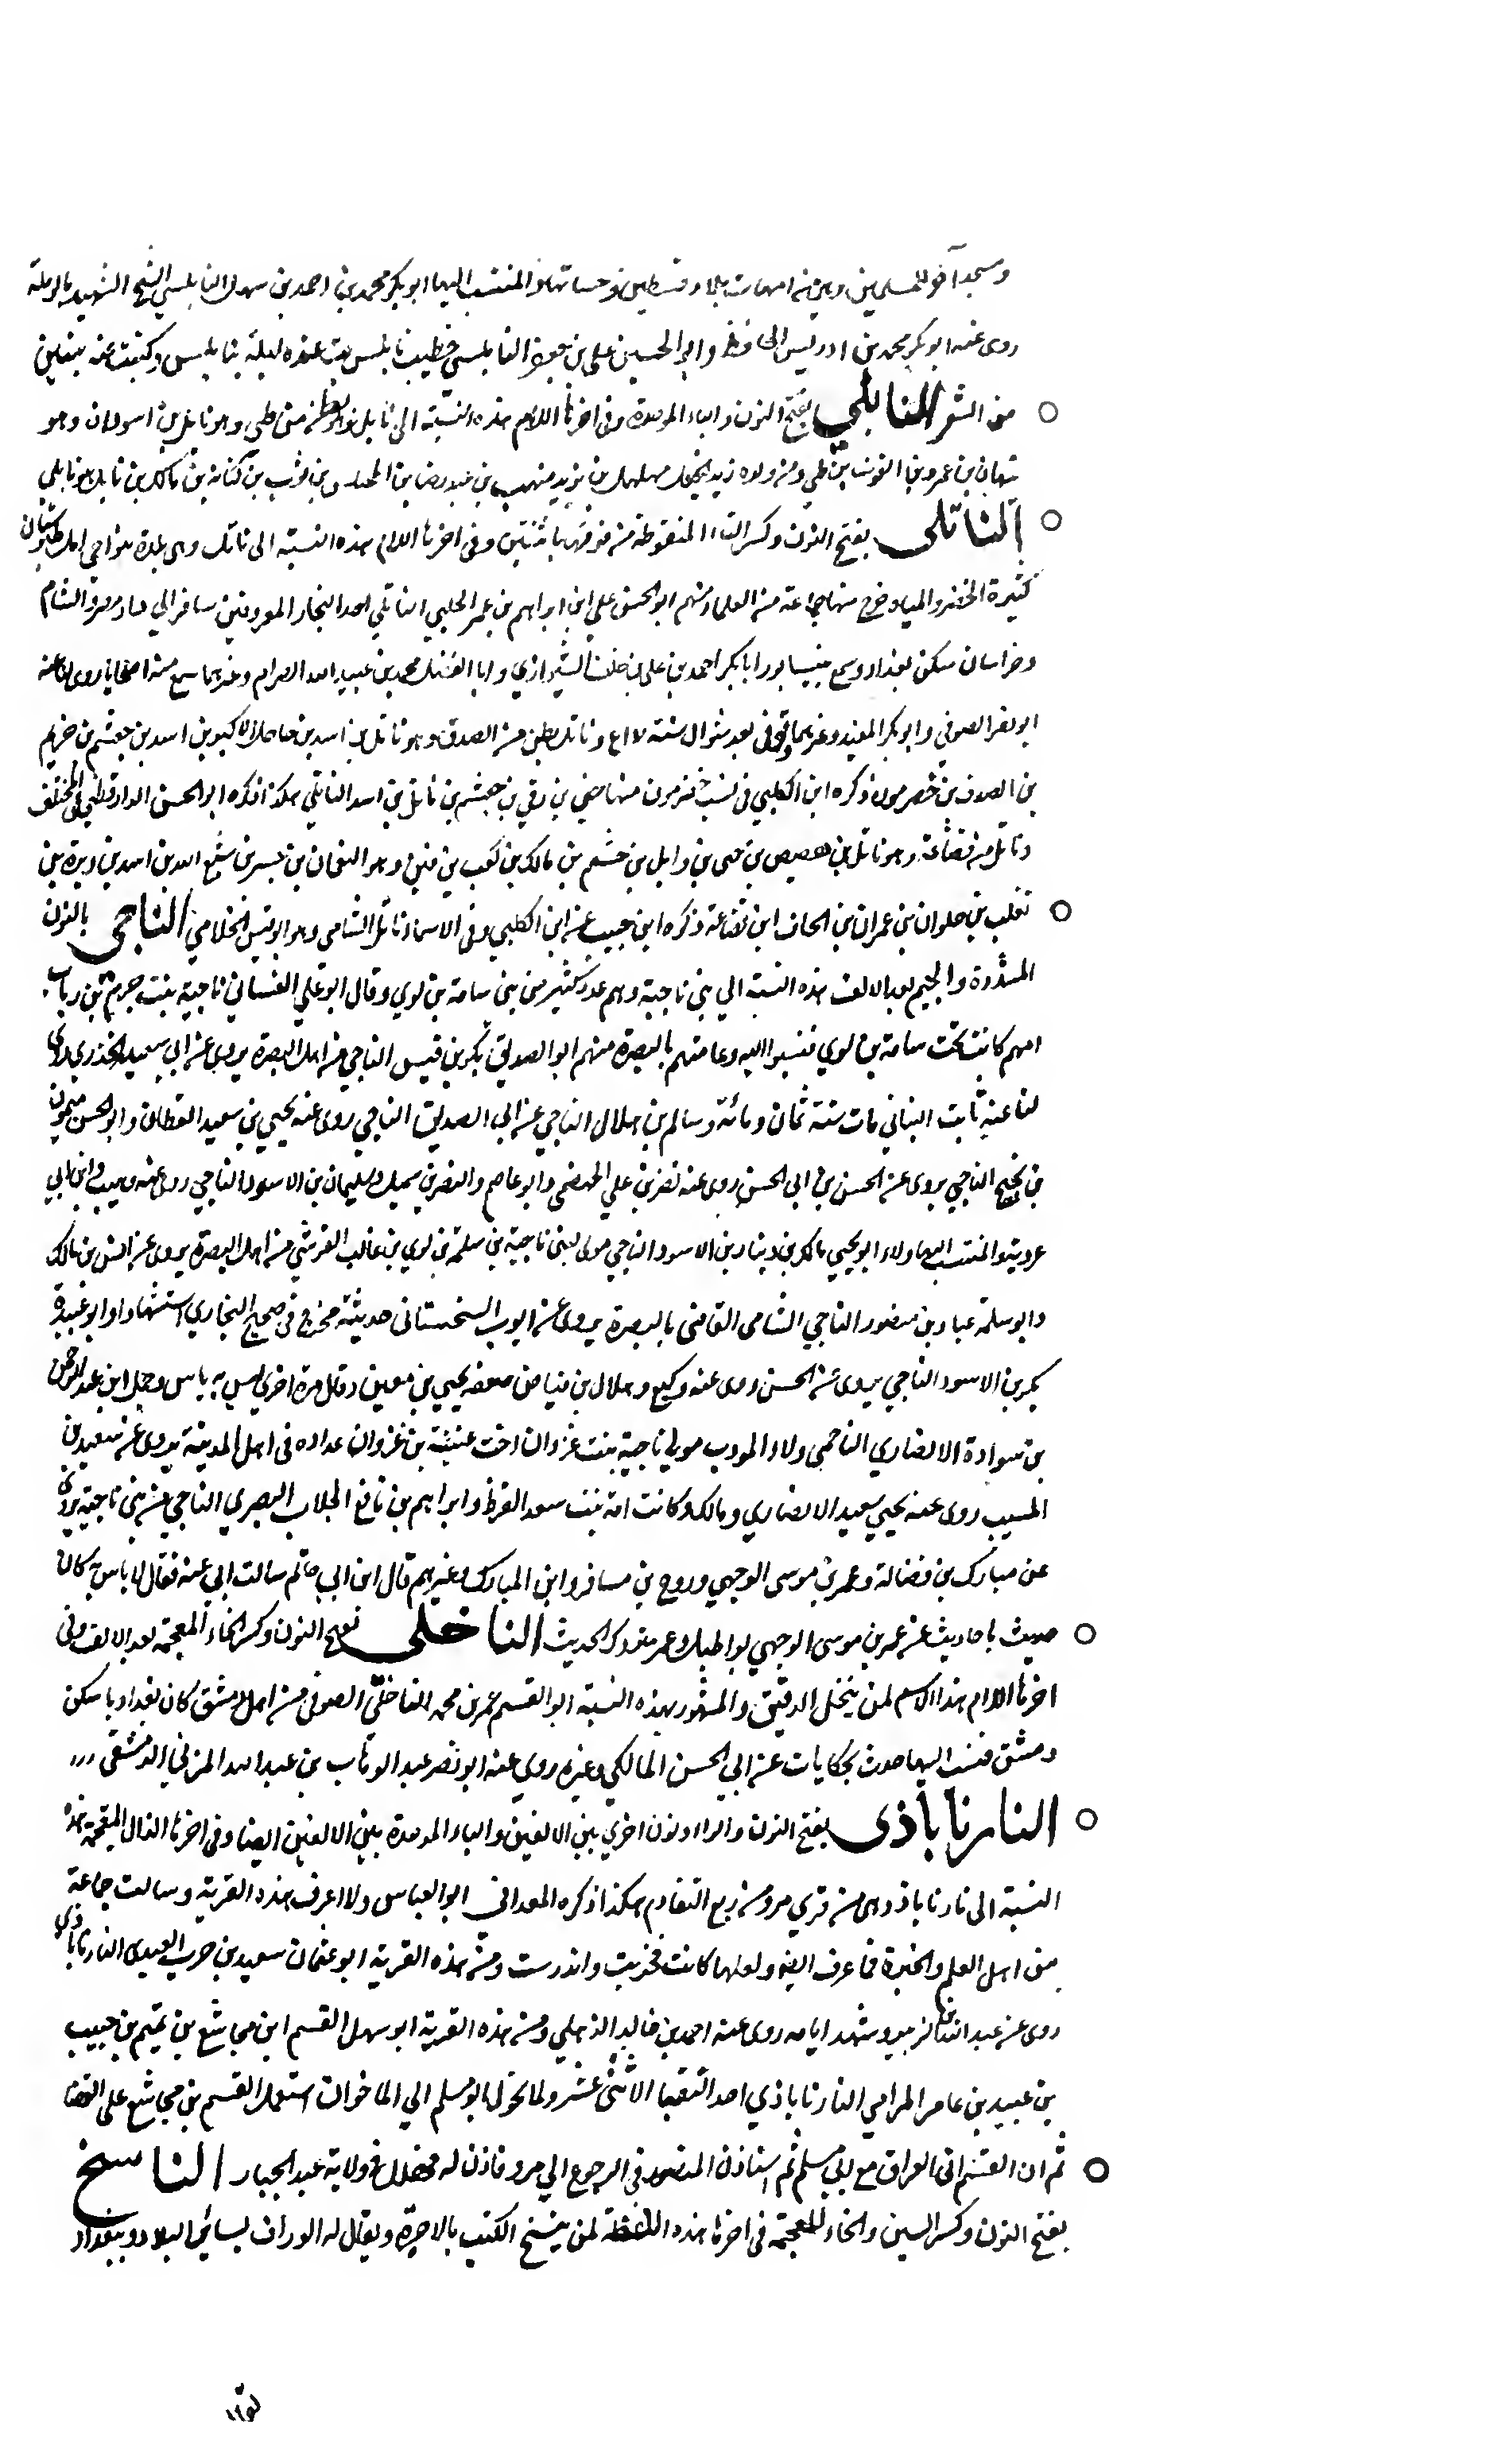 ومسجد آخر للمسلمين وهي من امهات بلاد فلسطين وحسانتها والمنتسب اليها ابو بكر محمد بن احمد بن سهل النابلسي الشيخ الشهيد بالرملة
روى عنه ابو بكر محمد بن ادريس الحافظ وابو الحسين علي بن جعفر النابلسي خطيب نابلس بت عنده ليلة بنابلس وكتبت عنه بيتين
من الشعر النابلي بفتح النون والباء الموحدة وفي اخرها اللام هذه النسبة الى نابل وهو بطن من طي وهو نابل بن اسودان وهو
نبهان بن عمرو بن الغوث بن طي ومن ولده زيد الخيل بن مهلهل بن يزيد بن منهب بن عبد رضا بن المختلس بن ثوب بن كنانة بن مالك بن نابل هو نابلي
الناتلي بفتح النون وكسر التاء المنقوطة من فوقها باثنتين وفي اخرها اللام هذه النسبة الى ناتل وهي بلدة بنواحي امل طبرستان
كثيرة الخضر والمياه خرج منها جماعة من العلماء ومنهم ابو الحسن علي ابن ابراهيم بن عمر الحلبي الناتلي احد التجار المعروفين سافر الي ديار مصر والشام
وخراسان سكن بغداد وسمع بنيسابور ابا بكر احمد بن علي بن خلف الشيرازي وابا الفضل محمد بن عبيد الله الصرام وغيرهما سمع منه اصحابنا روى لنا عنه
ابو نصر الصوفي وابو بكر المفيد وغيرهما وتوفي بعد شوال سنة وناتل بطن من الصدف وهو ناتل بن اسد بن جاحل الاكبر بن اسد بن جعشم بن خريم
بن الصدف بن حضرموت ذكره ابن الكلبي في نسب حضرموت منها حي بن رقي بن جعشم بن ناتل بن اسد الناتلي هكذا ذكره ابو الحسن الدارقطني في المختلف
وناتل من قضاعة وهو ناتل بن هصيص بن حي بن وايل بن جشم بن مالك بن كعب بن القين وهو النعمان بن جسر بن شيع الله بن اسد بن وبرة بن
تغلب بن حلوان بن عمران بن الحاف ابن قضاعة ذكره ابن حبيب عن ابن الكلبي وفي الاسماء ناتل الشامي وهو ابو قيس الخذامي الناجي بالنون
المشددة والجيم بعد الالف هذه النسبة الي بني ناجية وهم عدد كثير من بني سامة بن لوي وقال ابو علي الغساني ناجية بنت جرم بن ربان
امهم كانت تحت سامة بن لوي فنسبوا اليه وعامتهم بالبصرة منهم ابو الصديق بكر بن قيس الناجي من اهل البصرة يروي عن ابي سعيد الخدري روى
لنا عنه ثابت البناني مات سنة ثمان ومائة وسالم بن هلال الناجي عن ابي الصديق الناجي روى عنه يحيي بن سعيد القطان وابو الحسن ميمون
بن نجيح الناجي يروى عن الحسن بن ابي الحسن روى عنه نصر بن علي الجهضمي وابو عاصم والنضر بن شميل وسليمان بن الاسود الناجي روى عنه وهيب وابن ابي
عروبة والمنتسب اليها ولاء ابو يحيي مالك بن دينار بن الاسود الناجي مولى لبني ناجية بن سلمة بن لوي بن غالب القرشي من اهل البصرة يروى عن انس بن مالك
وابو سلمة عباد بن منصور الناجي الشامي القاضي بالبصرة يروى عن ايوب السختياني حديثه مخرج في صحيح البخاري استشهادا وابو عبيدة
بكر بن الاسود الناجي يروى عن الحسن روى عنه وكيع وهلال بن فياض ضعفه يحيي بن معين وقال مرة اخري ليس به باس وجميل ابن عبد الرحمن
بن سوادة الانصاري الناجي ولاء المودب مولي ناجية بنت غزوان اخت عتبة بن غزوان عداده في اهل المدينة يروى عن سعيد بن
المسيب روى عنه يحيي سعيد الانصاري ومالك وكانت امه بنت سعد القرظ وابراهيم بن نافع الجلاب البصري الناجي من بني ناجية يروى
عن مبارك بن فضالة وعمر بن موسى الوجيهي وروح بن مسافر وابن المبارك وغيرهم قال ابن ابي حاتم سالت ابي عنه فقال لا باس به كان
حديث باحاديث عن عمر بن موسى الوجيهي بواطيل وعمر متروك الحديث الناخلي بفتح النون وكسر الخاء المعجمة بعد الالف وفي
اخرها اللام هذا الاسم لمن ينخل الدقيق والمشهور بهذه النسبة ابو القسم عمر بن محمد الناخلي الصوفي من اهل دمشق كان بغداديا سكن
دمشق فنسب اليها حدث بحكايات عن ابي الحسن المالكي وغيره روي عنه ابو نصر عبد الوهاب بن عبد الله المزني الدمشقي
النارناباذي بفتح النون والراء ونون اخري بين الالفين والباء الموحدة بين الالفين ايضا وفي اخرها الذال المعجمة هذه
النسبة الى نارناباذ وهي من قري مرو من ربع التقادم هكذا ذكره المعداني ابو العباس ولا اعرف هذه القرية وسالت جماعة
من اهل العلم والخبرة فما عرف ايضا ولعلها كانت فخربت واندرست ومن هذه القرية ابو عثمان سعيد بن حرب العبدي النارناباذي
روى عن عبد الله بن الزبير وشهد ايامه روى عنه احمد بن خالد الذهلي ومن هذه القرية ابو سهل القسم ابن مجاشع بن تميم بن حبيب
بن عبيد بن عامر المرامي النارناباذي احد النقبا الاثني عشر ولما تحول ابو مسلم الي الماخوان استعمل القسم بن مجاشع على القضا
ثم ان القسم اتى العراق مع ابي مسلم ثم استاذن المنصور في الرجوع الي مرو فاذن له في ولاية عبد الجبار الناسخ
بفتح النون وكسر السين والخاء المعجمة في اخرها هذه اللفظة لمن ينسخ الكتب بالاجرة ويقال له الوراق بسائر البلاد وببغداد